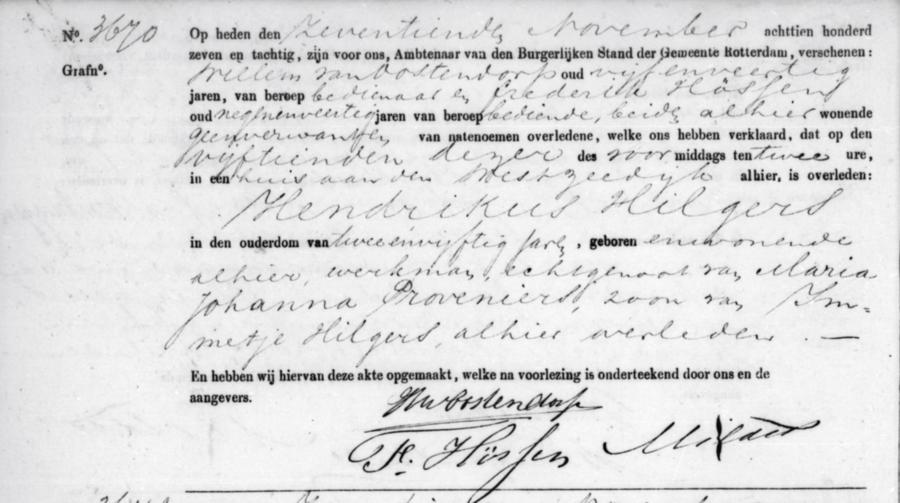 No. 3670 Op heden den Zeventienden November achttien honderd
zeven en tachtig, zijn voor ons, Ambtenaar van den Burgerlijken Stand der Gemeente Rotterdam, verschenen:
Grafno. Willem van Oostendorp oud vijfenveertig
jaren, van beroep bediende en Frederik Hössen
oud negenenveertig jaren van beroep bediende, beide alhier wonende
geen verwanten van natenoemen overledene, welke ons hebben verklaard, dat op den
vijftienden dezer des voormiddags ten twee ure,
in een huis aan den Westzeedijk alhier, is overleden:
Hendrikus Hilgers
in den ouderdom van twee en vijftig jaren, geboren en wonende
alhier, werkman, echtgenoot van Maria
Johanna Proveniers, zoon van Im-
metje Hilgers, alhier overleden. —
En hebben wij hiervan deze akte opgemaakt, welke na voorlezing is onderteekend door ons en de
aangevers.
WvOostendorp
Fr. Hössen